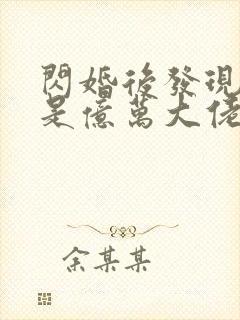 閃婚後發現
是億萬大佬
余某某